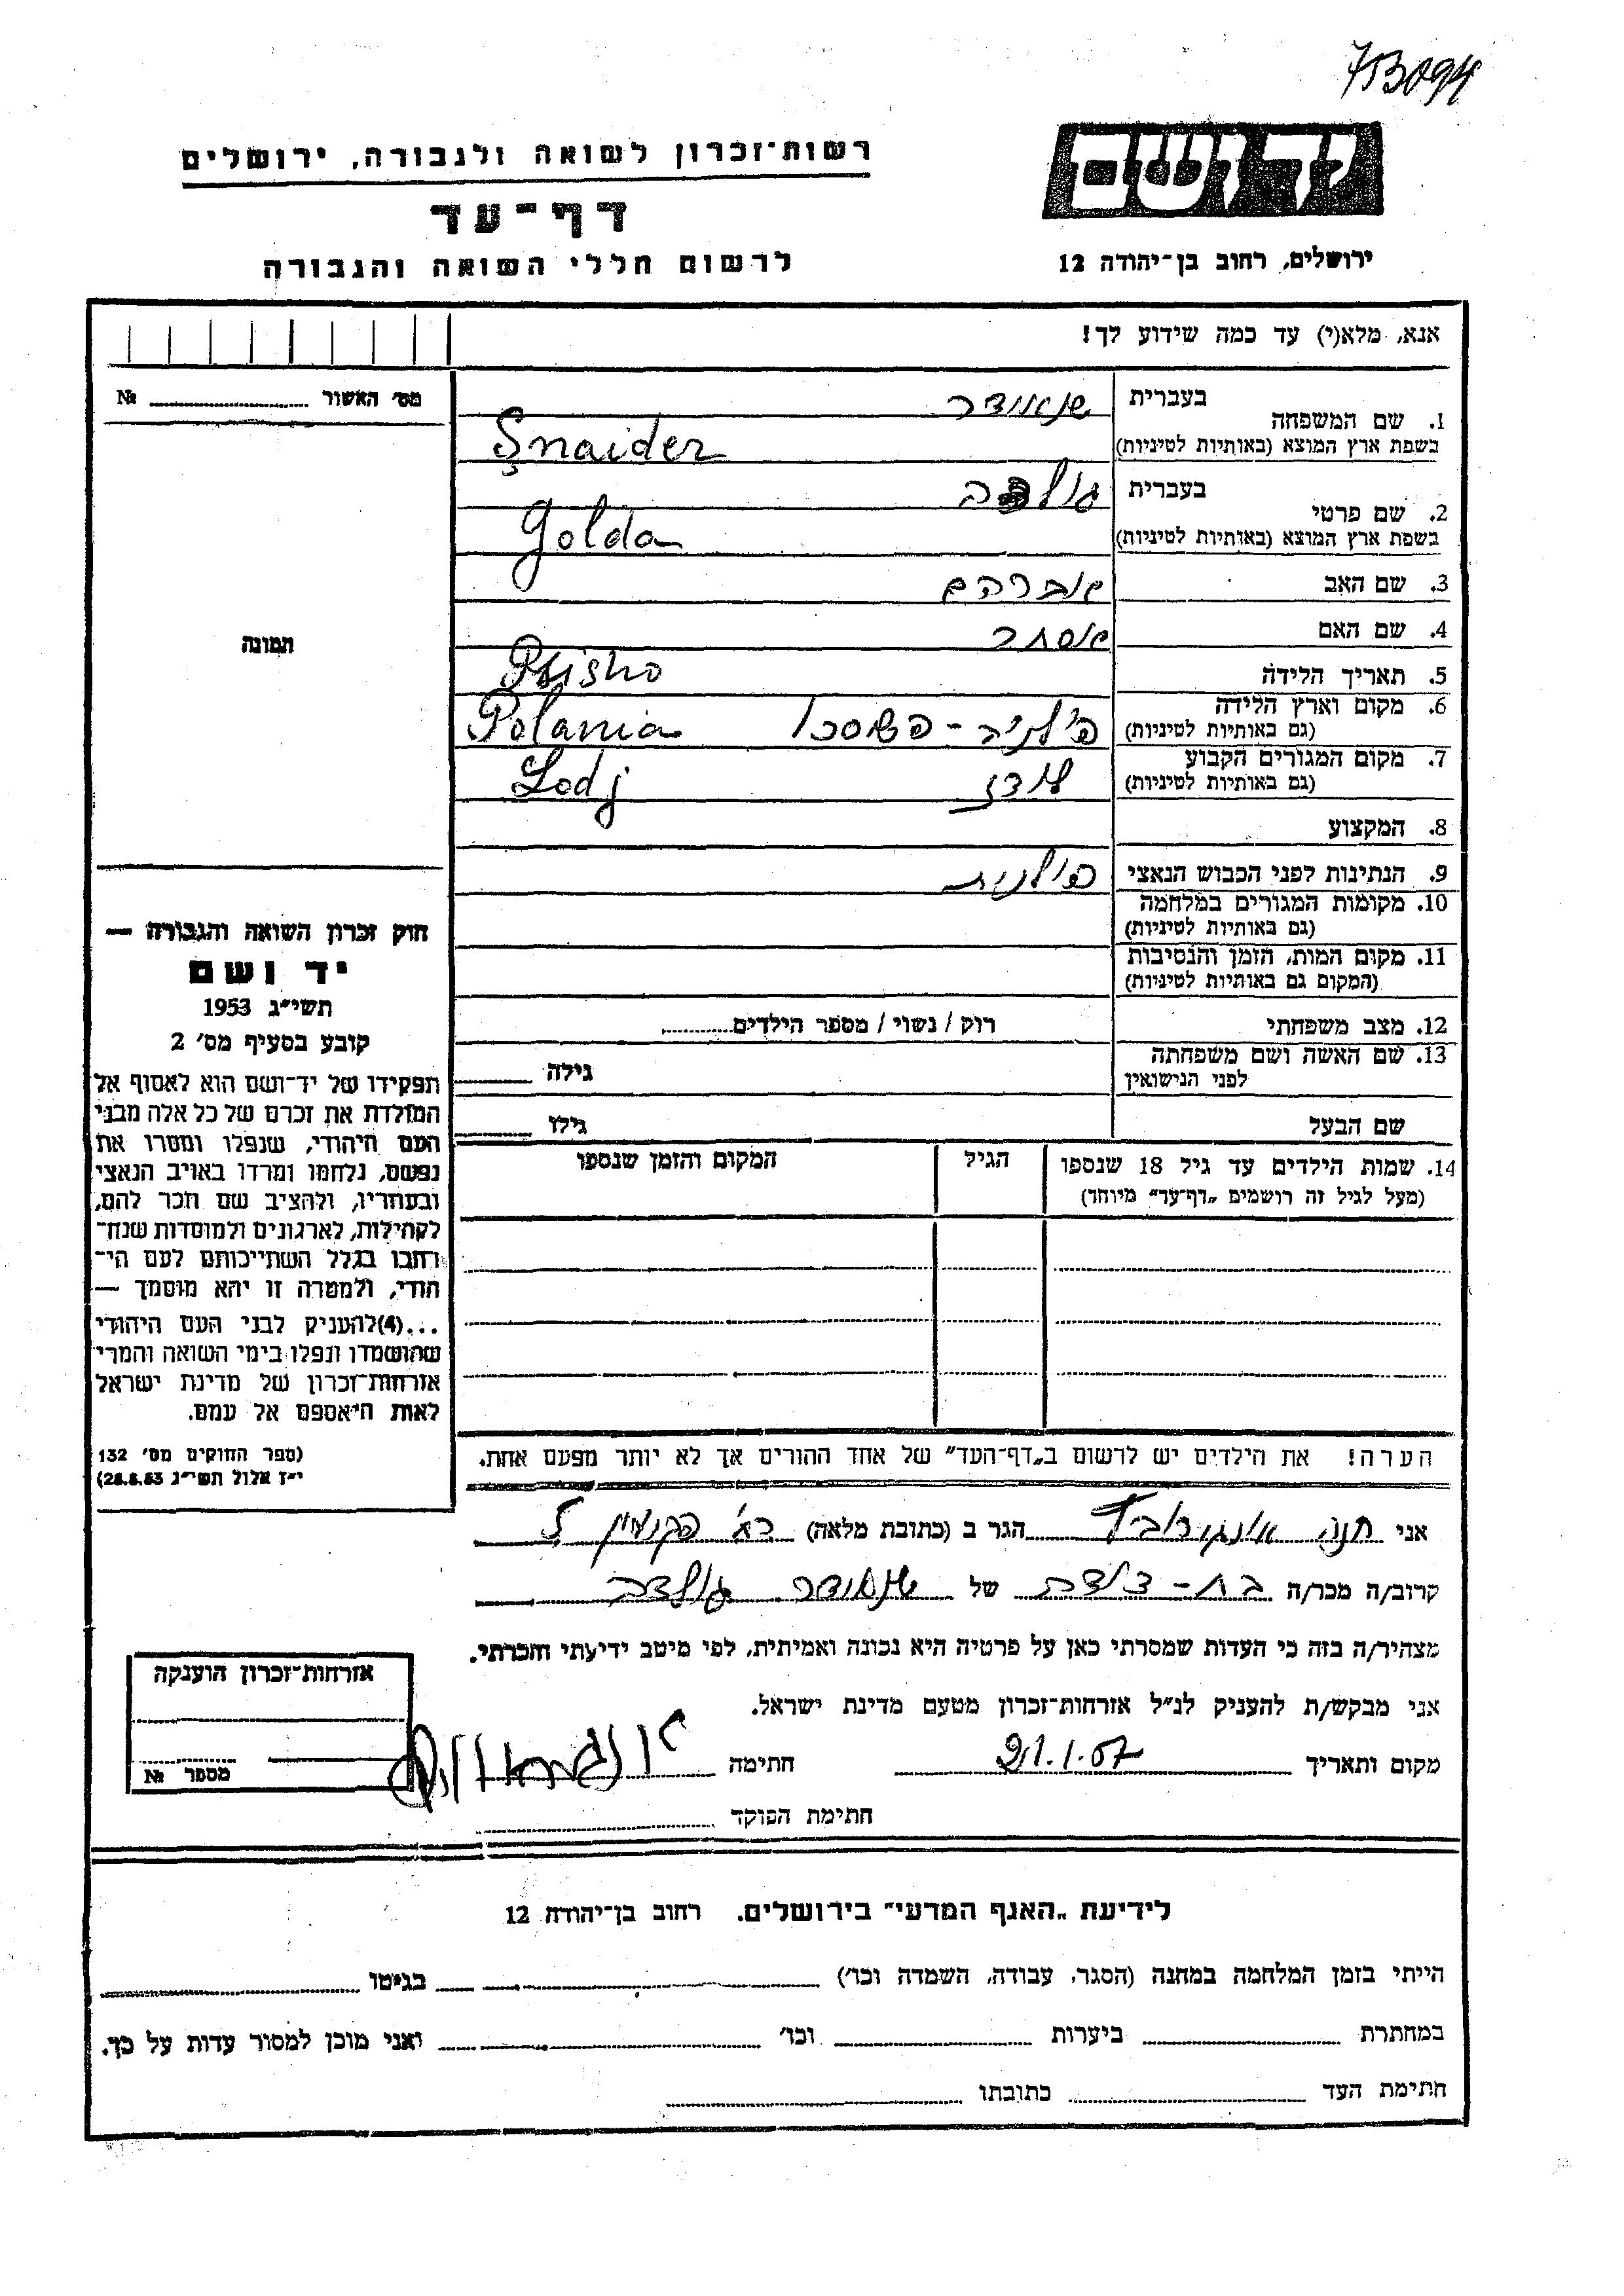 713094
יד ושם
ירושלים, רחוב בן־יהודה 12
רשות־זכרון לשואה ולגבורה, ירושלים
דף־עד
לרשום חללי השואה והגבורה
אנא, מלא(י) עד כמה שידוע לך!
מס׳ האשור №
1. שם המשפחה
בעברית שנאידר
בשפת ארץ המוצא (באותיות לטיניות) Şnaider
2. שם פרטי
בעברית גולדה
בשפת ארץ המוצא (באותיות לטיניות) Golda
3. שם האב אברהם
4. שם האם אסתר
5. תאריך הלידה
6. מקום וארץ הלידה
(גם באותיות לטיניות) פולניה - Polania
7. מקום המגורים הקבוע
(גם באותיות לטיניות) לודז Lodj
8. המקצוע
9. הנתינות לפני הכבוש הנאצי פולנית
10. מקומות המגורים במלחמה
(גם באותיות לטיניות)
11. מקום המות, הזמן והנסיבות
(המקום גם באותיות לטיניות)
12. מצב משפחתי רוק / נשוי / מספר הילדים
13. שם האשה ושם משפחתה
לפני הנישואין גילה
שם הבעל גילו
14. שמות הילדים עד גיל 18 שנספו
(מעל לגיל זה רושמים „דף־עד״ מיוחד)
הגיל
המקום והזמן שנספו
תמונה
חוק זכרון השואה והגבורה —
יד ושם
תשי״ג 1953
קובע בסעיף מס׳ 2
תפקידו של יד־ושם הוא לאסוף אל
המולדת את זכרם של כל אלה מבני
העם היהודי, שנפלו ומסרו את
נפשם, נלחמו ומרדו באויב הנאצי
ובעוזריו, ולהציב שם וזכר להם,
לקהילות, לארגונים ולמוסדות שנח־
רבו בגלל השתייכותם לעם הי־
הודי, ולמטרה זו יהא מוסמך —
...(4)להעניק לבני העם היהודי
שהושמדו ונפלו בימי השואה והמרי
אזרחות־זכרון של מדינת ישראל
לאות היאספם אל עמם.
(ספר החוקים מס׳ 132
י״ז אלול תשי״ג 28.8.53)
הערה! את הילדים יש לרשום ב„דף־העד״ של אחד ההורים אך לא יותר מפעם אחת.
אני חנה הגר ב (כתובת מלאה)
קרוב/ה מכר/ה בת-דודה של שנאידר גולדה
מצהיר/ה בזה כי העדות שמסרתי כאן על פרטיה היא נכונה ואמיתית, לפי מיטב ידיעתי והכרתי.
אני מבקש/ת להעניק לנ״ל אזרחות־זכרון מטעם מדינת ישראל.
מקום ותאריך חתימה
חתימת הפוקד
אזרחות־זכרון הוענקה
מספר №
לידיעת „האגף המדעי״ בירושלים. רחוב בן־יהודה 12
הייתי בזמן המלחמה במחנה (הסגר, עבודה, השמדה וכו׳) בגיטו
במחתרת ביערות וכו׳ ואני מוכן למסור עדות על כך.
חתימת העד כתובתו